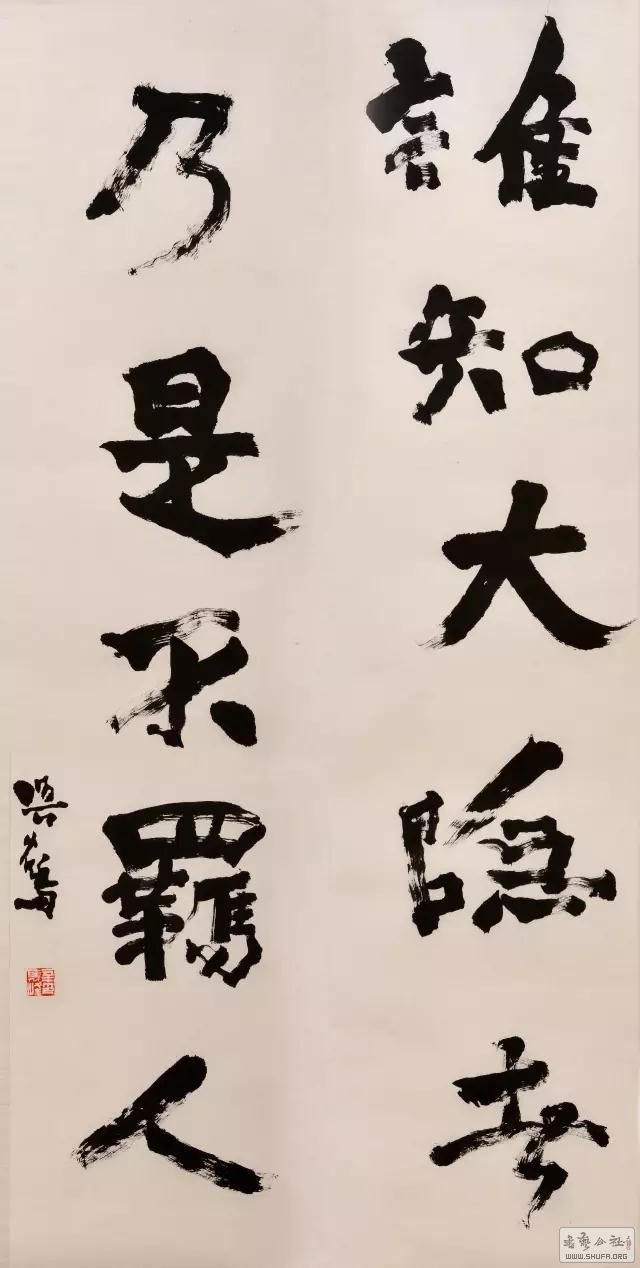 誰知大隐者
乃是不羈人
書藝公社
WWW.SHUFA.ORG